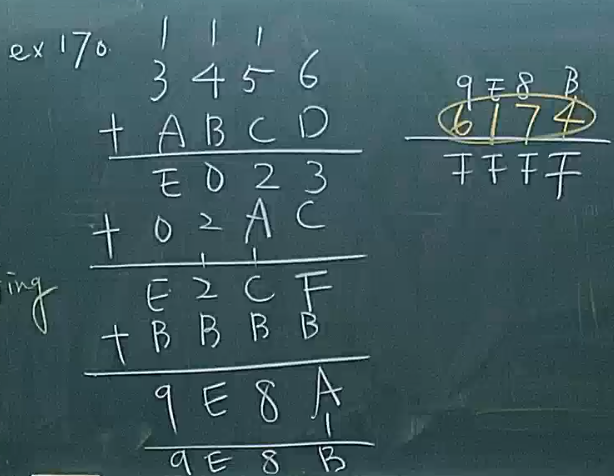 1 1 1
ex 170. 3 4 5 6
+ A B C D
E 0 2 3
+ 0 2 A C
1 1
E 2 C F
+ B B B B
9 E 8 A
1
9 E 8 B
ing
9 E 8 B
6 1 7 4
F F F F